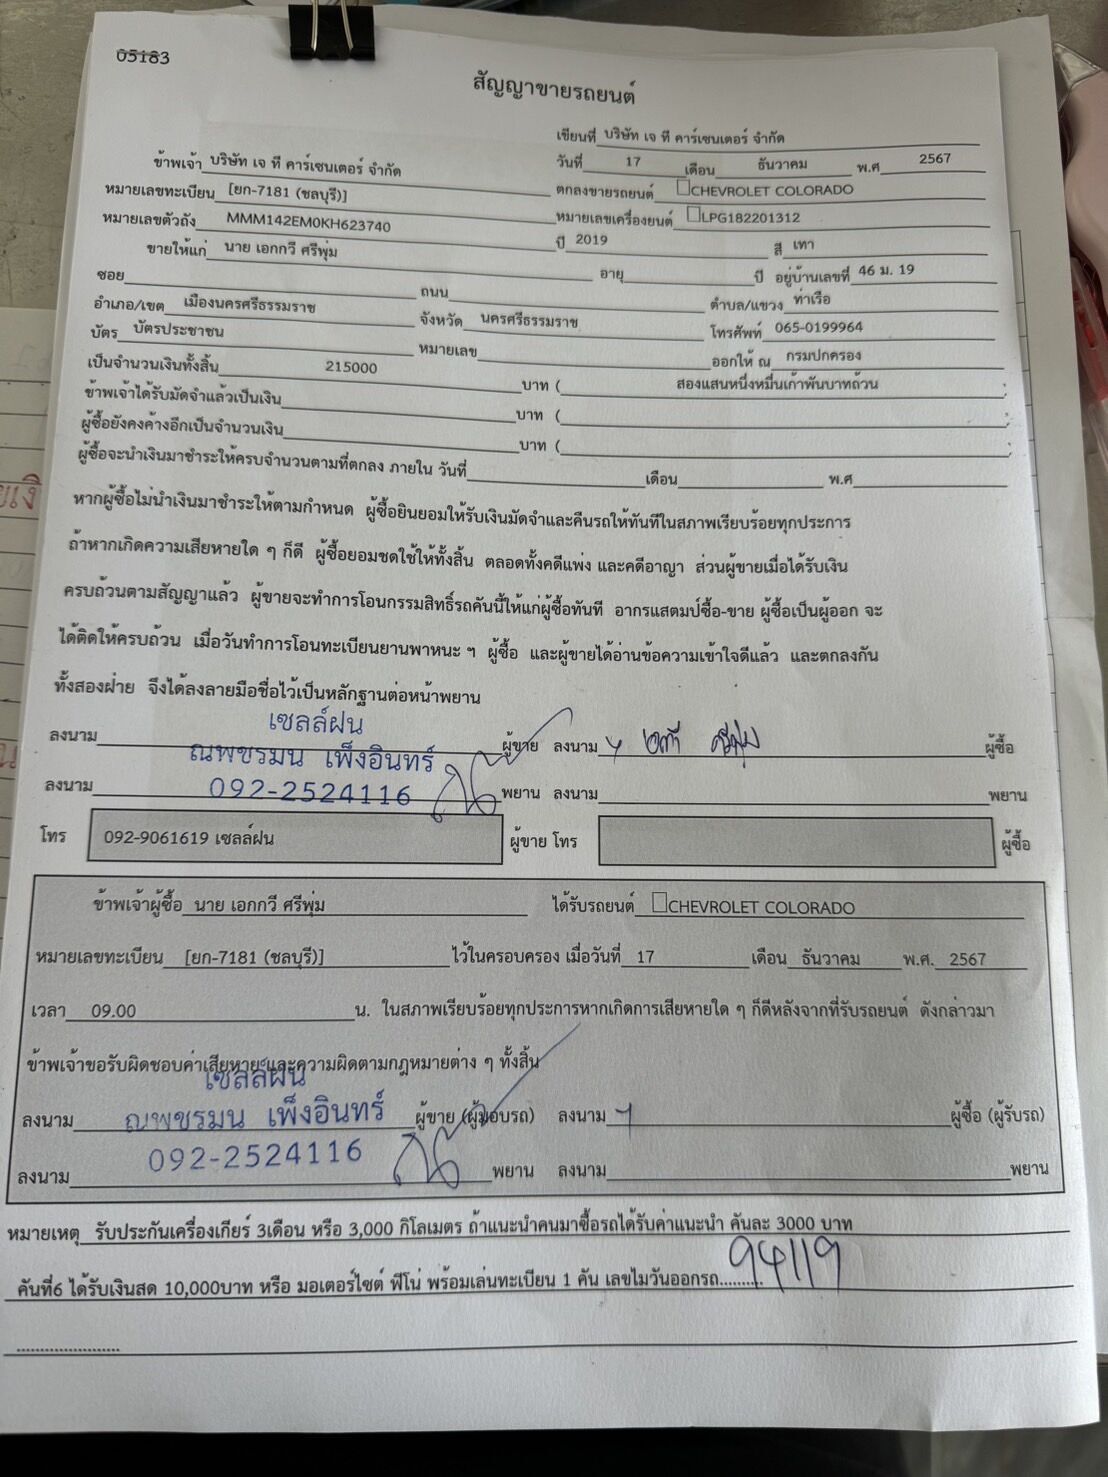 05183
สัญญาขายรถยนต์
เขียนที่ บริษัท เจ ที คาร์เซนเตอร์ จำกัด
ข้าพเจ้า บริษัท เจ ที คาร์เซนเตอร์ จำกัด วันที่ 17 เดือน ธันวาคม พ.ศ 2567
หมายเลขทะเบียน [ยก-7181 (ชลบุรี)] ตกลงขายรถยนต์ CHEVROLET COLORADO
หมายเลขตัวถัง MMM142EM0KH623740 หมายเลขเครื่องยนต์ LPG182201312
ขายให้แก่ นาย เอกกวี ศรีพุ่ม ปี 2019 สี เทา
ซอย ถนน อายุ ปี อยู่บ้านเลขที่ 46 ม. 19
อำเภอ/เขต เมืองนครศรีธรรมราช จังหวัด นครศรีธรรมราช ตำบล/แขวง ท่าเรือ
บัตร บัตรประชาชน หมายเลข โทรศัพท์ 065-0199964
ออกให้ ณ กรมปกครอง
เป็นจำนวนเงินทั้งสิ้น 215000 บาท ( สองแสนหนึ่งหมื่นเก้าพันบาทถ้วน
ข้าพเจ้าได้รับมัดจำแล้วเป็นเงิน บาท (
ผู้ซื้อยังคงค้างอีกเป็นจำนวนเงิน บาท (
ผู้ซื้อจะนำเงินมาชำระให้ครบจำนวนตามที่ตกลง ภายใน วันที่ เดือน พ.ศ
หากผู้ซื้อไม่นำเงินมาชำระให้ตามกำหนด ผู้ซื้อยินยอมให้รับเงินมัดจำและคืนรถให้ทันทีในสภาพเรียบร้อยทุกประการ
ถ้าหากเกิดความเสียหายใด ๆ ก็ดี ผู้ซื้อยอมชดใช้ให้ทั้งสิ้น ตลอดทั้งคดีแพ่ง และคดีอาญา ส่วนผู้ขายเมื่อได้รับเงิน
ครบถ้วนตามสัญญาแล้ว ผู้ขายจะทำการโอนกรรมสิทธิ์รถคันนี้ให้แก่ผู้ซื้อทันที อากรแสตมป์ซื้อ-ขาย ผู้ซื้อเป็นผู้ออก จะ
ได้ติดให้ครบถ้วน เมื่อวันทำการโอนทะเบียนยานพาหนะ ฯ ผู้ซื้อ และผู้ขายได้อ่านข้อความเข้าใจดีแล้ว และตกลงกัน
ทั้งสองฝ่าย จึงได้ลงลายมือชื่อไว้เป็นหลักฐานต่อหน้าพยาน
เซลล์ฝน
ลงนาม ผู้ขาย ลงนาม ผู้ซื้อ
ณพชรมน เพ็งอินทร์
092-2524116
ลงนาม พยาน ลงนาม พยาน
โทร 092-9061619 เซลล์ฝน ผู้ขาย โทร ผู้ซื้อ
ข้าพเจ้าผู้ซื้อ นาย เอกกวี ศรีพุ่ม ได้รับรถยนต์ CHEVROLET COLORADO
หมายเลขทะเบียน [ยก-7181 (ชลบุรี)] ไว้ในครอบครอง เมื่อวันที่ 17 เดือน ธันวาคม พ.ศ. 2567
เวลา 09.00 น. ในสภาพเรียบร้อยทุกประการหากเกิดการเสียหายใด ๆ ก็ดีหลังจากที่รับรถยนต์ ดังกล่าวมา
ข้าพเจ้าขอรับผิดชอบค่าเสียหายและความผิดตามกฎหมายต่าง ๆ ทั้งสิ้น
เซลล์ฝน
ลงนาม ณพชรมน เพ็งอินทร์ ผู้ขาย (ผู้มอบรถ) ลงนาม ผู้ซื้อ (ผู้รับรถ)
092-2524116
ลงนาม พยาน ลงนาม พยาน
หมายเหตุ รับประกันเครื่องเกียร์ 3เดือน หรือ 3,000 กิโลเมตร ถ้าแนะนำคนมาซื้อรถได้รับค่าแนะนำ คันละ 3000 บาท
คันที่6 ได้รับเงินสด 10,000บาท หรือ มอเตอร์ไซต์ ฟีโน่ พร้อมเล่นทะเบียน 1 คัน เลขไมวันออกรถ..........94119
......................